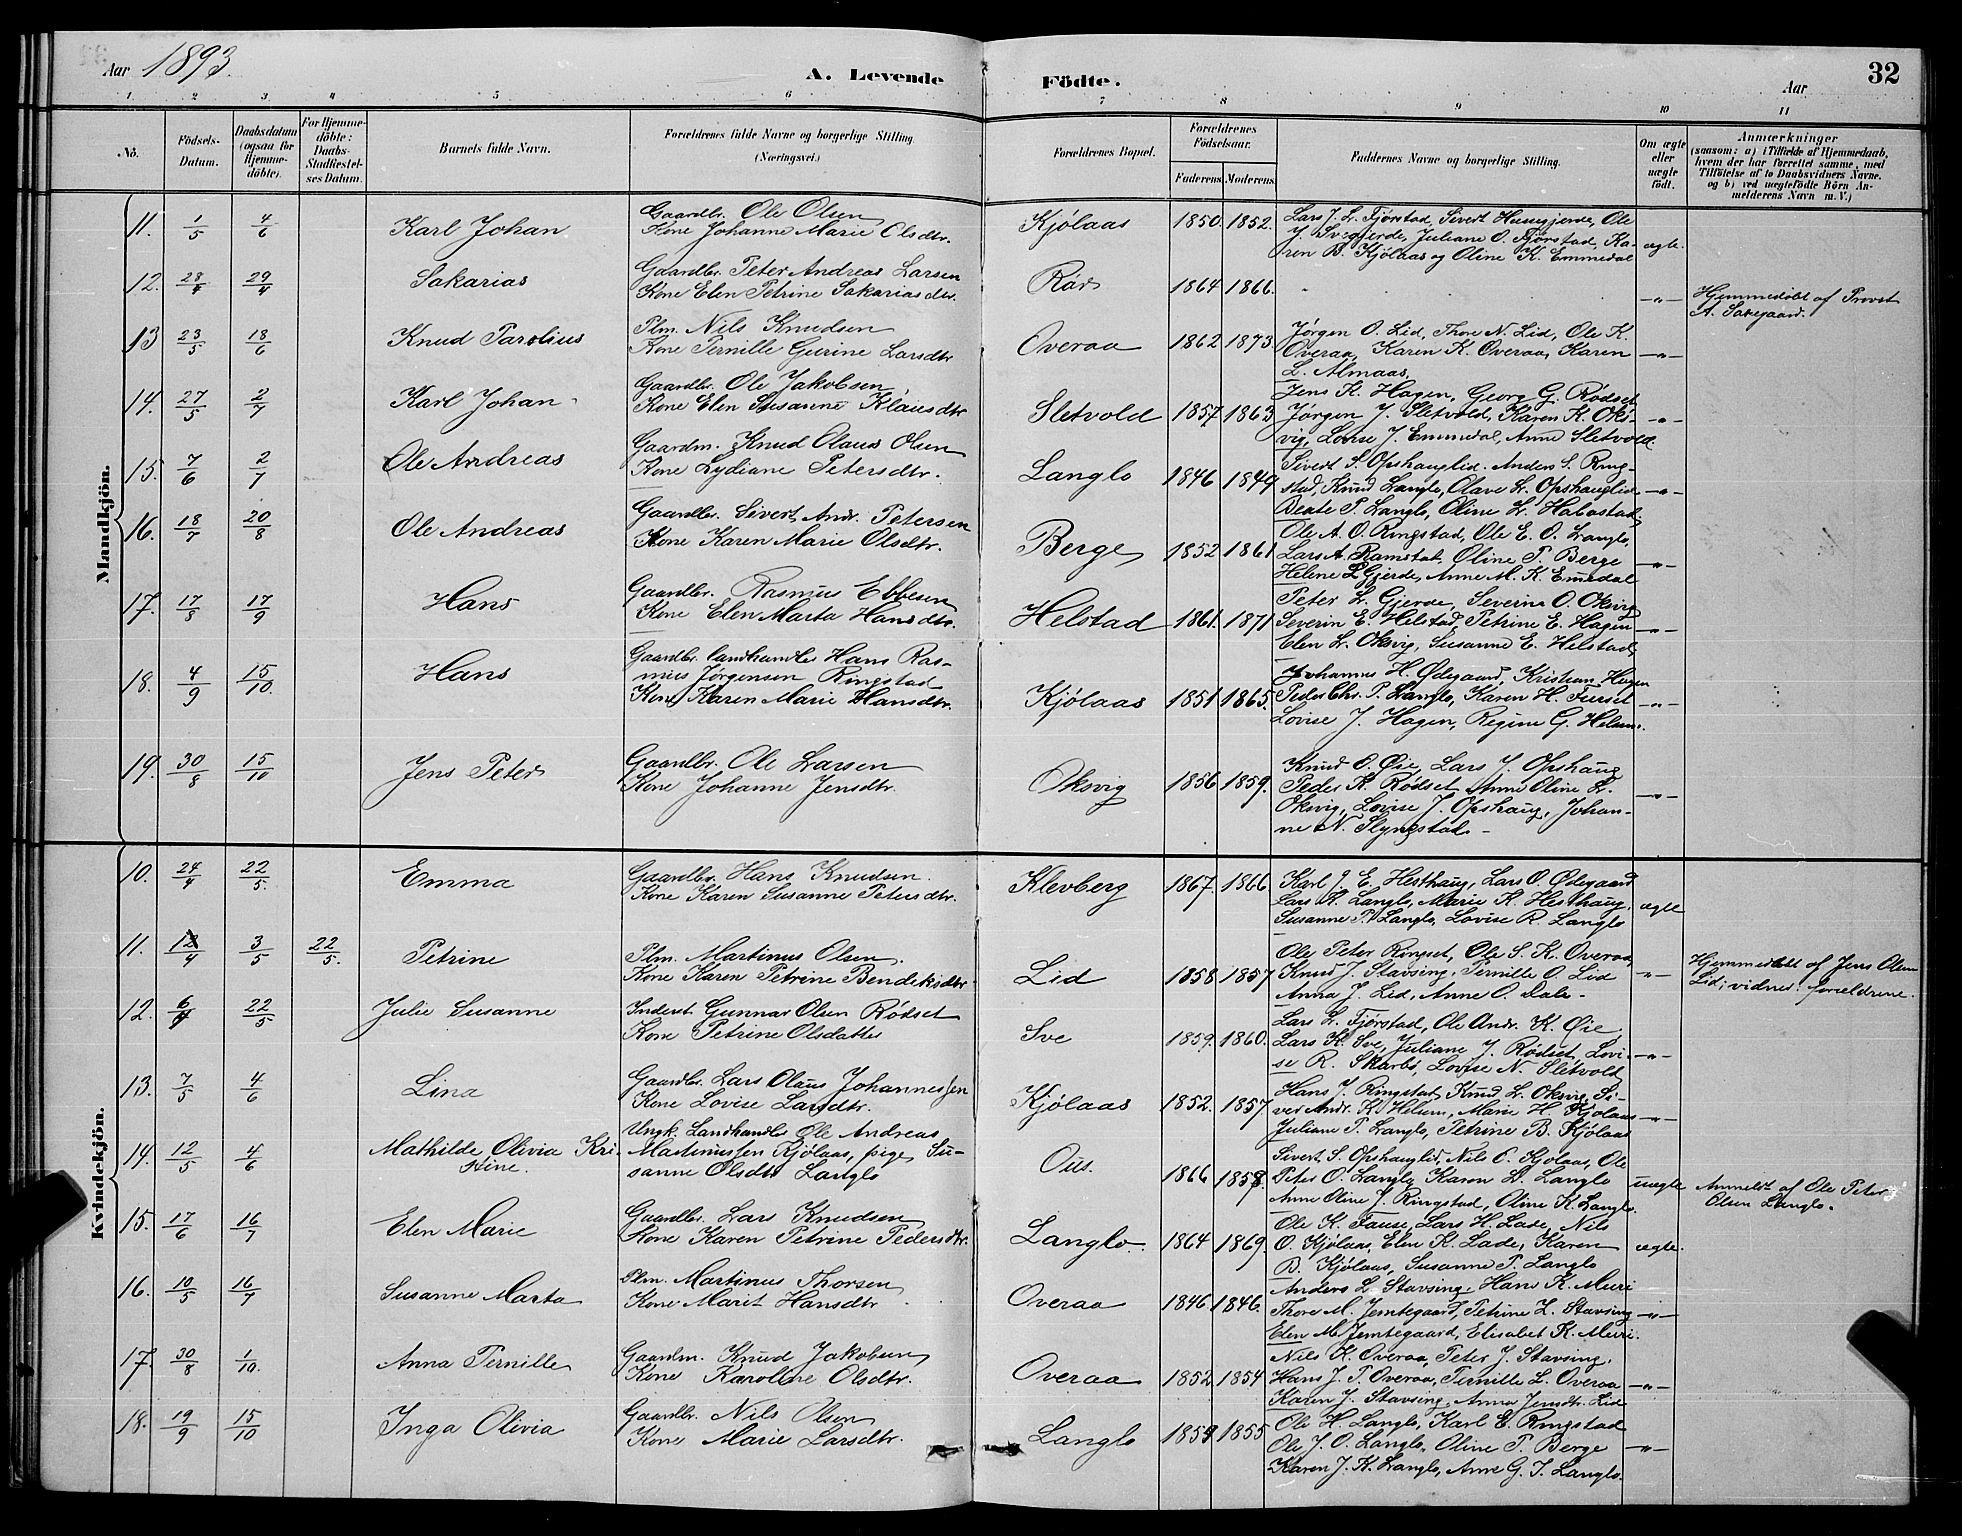 Aar 1893.
A. Levende Födte.
Aar
32
1 2 3 4 5 6 7 8 9 10 11
No.
Födsels-Datum.
Daabsdatum (ogsaa for Hjemme-döbte).
For Hjemme-döbte: Daabs-Stadfæstel-ses Datum.
Barnets fulde Navn.
Forældrenes fulde Navne og borgerlige Stilling. (Næringsvei.)
Forældrenes Bopæl.
Forældrenes Födselsaar.
Faderens. Moderens.
Faddernes Navne og borgerlige Stilling.
Om ægte eller uægte födt.
Anmærkninger
(saasom: a) i Tilfælde af Hjemmedaab,
hvem der har forrettet samme, med
Tilföielse af to Daabsvidners Navne.
og b) ved uægtefödte Börn An-
melderens Navn m. V.)
Mandkjön.
11. 1/5 4/6 Karl Johan
Gaardbr. Ole Olsen
Kone Johanne Marie Olsdtr.
Kjölaas 1850. 1852.
Lars J. L. Fjørstad, Sivert Husegjerde, Ole
J. Svegjerde, Juliane O. Fjørstad, Ka-
ren B. Kjölaas og Oline K. Emmedal
ægte.
12. 28/4 29/4 Sakarias
Gaardbr. Peter Andreas Larsen
Kone Elen Petrine Sakariasdtr.
Rød 1864 1866.
-"-
Hjemmedöbt af Provst
A. Saxegaard.
13 23/5 18/6 Knud Parolius
Plm. Nils Knudsen
Kone Pernille Gurine Larsdtr
Overaa 1862 1873
Jørgen O. Lid, Thore N. Lid, Ole K.
Overaa, Karen K. Overaa, Karen
L. Almaas.
-"-
14. 27/5 2/7 Karl Johan
Gaardbr. Ole Jakobsen
Kone Elen Susanne Klausdtr
Sletvold 1857 1863
Jens K. Hagen, Georg G. Rødset
Jørgen J. Sletvold, Karen K. Oks-
vig, Lovise J. Emmedal, Anne Sletvold.
-"-
15. 7/6 2/7 Ole Andreas
Gaardm. Knud Olaus Olsen
Kone Lydiane Petersdtr.
Langlo 1846 1849
Sivert S. Opshauglid. Anders S. Ring-
stad, Knud Langlo, Olave L. Opshauglid
Beate P. Langlo, Oline L. Habostad
-"-
16. 18/7 20/8 Ole Andreas
Gaardbr. Sivert Andr. Petersen
Kone Karen Marie Olsdtr.
Berge 1852 1861
Ole A. O. Ringstad, Ole E. O. Langlo,
Lars A. Ramstad, Oline P. Berge
Helene L Gjerde, Anne M. K. Emedal
-"-
17. 17/8 17/9 Hans
Gaardbr. Rasmus Ebbesen
Kone Elen Marta Hansdtr.
Helstad 1861. 1871
Peter L. Gjerde, Severine O. Oksvig
Severin E. Helstad, Petrine E. Hagen
Elen L. Oksvig, Susanne E. Helstad,
-"-
18. 4/9 15/10. Hans
Gaardbr. landhandler Hans Ras-
mus Jørgensen Ringstad
Kone Karen Marie Hansdtr.
Kjölaas 1851 1865.
Johannes H. Ødegaard, Kristian Hagen
Peder Chr. P. Langlo, Karen H. Furset
Lovise J. Hagen, Regine G. Helsem.
-"-
19. 30/8 15/10 Jens Peter
Gaardbr. Ole Larsen
Kone Johanne Jensdtr.
Oksvig 1856 1859.
Knud O. Øie, Lars J. Opshaug
Peder K. Rødset, Anne Oline L.
Oksvig, Lovise J. Opshaug, Johan-
ne N. Slyngstad. -
-"-
Kvindekjön.
10. 24/4 22/5. Emma
Gaardbr. Hans Knudsen.
Kone Karen Susanne Petersdtr.
Klevberg 1867. 1866
Karl J. E. Hesthaug, Lars O. Ødegaard
Lars K. Langlo, Marie K. Hesthaug,
Susanne P. Langlo, Lovise R. Langlo
ægte
11. 12/4 3/5 22/5. Petrine
Plm. Martinus Olsen.
Kone Karen Petrine Bendiksdtr.
Lid 1858 1857
Ole Peter Ringset, Ole S. K. Overaa,
Knud J. Stavsing. Pernille O. Lid
Anna J. Lid, Anne O. Dale-
-"-
Hjemmedöbt af Jens Olsen
Lid; vidner: forældrene.
12. 6/4 22/5 Julie Susanne
Inderst Gunnar Olsen Rødset
Kone Petrine Olsdatter
Sve 1859. 1860.
Lars L. Fjørstad, Ole Andr. K. Øie,
Lars K. Sve, Juliane J. Rødset, Lovi-
se R. Skarbø, Lovise N. Sletvold
-"-
13. 7/5 4/6 Lina
Gaardbr. Lars Olaus Johannessen
Kone Lovise Larsdtr.
Kjölaas 1852. 1857
Hans J. Ringstad, Knud L. Oksvig, Si-
ver Andr. K. Helsem, Marie H. Kjölaas
Juliane P. Langlo, Petrine B. Kjölaas
-"-
14. 12/5 4/6 Mathilde Olivia Kri-
stine.
Ungk. Landhandler Ole Andreas
Martinussen Kjölaas, pige Su-
sanne Olsdtr Langlo
Ous. 1866 1858
Sivert S. Opshauglid, Nils O. Kjölaas, Ole
Peter O. Langlo, Karen L. Langlo
Anne Oline J. Ringstad, Oline K. Langlo.
uægte
Anmeldt af Ole Peter
Olsen Langlo.
15. 17/6 16/7 Elen Marie
Gaardbr. Lars Knudsen
Kone Karen Petrine Pedersdtr.
Langlo. 1864 1869
Ole K. Fause, Lars H. Lade, Nils
O. Kjölaas, Elen K. Lade, Karen
B. Kjölaas, Susanne P. Langlo
ægte.
16. 10/5 16/7 Susanne Marta
Plm. Martinus Thorsen
Kone Marit Hansdtr
Overaa 1846 1846.
Anders L. Stavsing, Hans K. Muri
Thore M. Jemtegaard, Petrine L. Stavsing
Elen M. Jemtegaard, Elisabet K. Muri.
-"-
17. 30/8 1/10. Anna Pernille
Gaardm. Knud Jakobsen
Kone Karoline Olsdtr.
Overaa 1852 1854
Nils K. Overaa, Peter J. Stavsing,
Hans J. P. Overaa, Pernille L. Overaa
Karen J. Stavsing, Anna Jensdtr. Lid
-"-
18. 19/9 15/10 Inga Olivia
Gaardbr. Nils Olsen
Kone Marie Larsdtr.
Langlo 1859 1855
Ole H. Langlo, Karl E. Ringstad
Ole J. O. Langlo, Oline P. Berge
Karen J. K. Langlo, Anne G. J. Langlo.
-"-